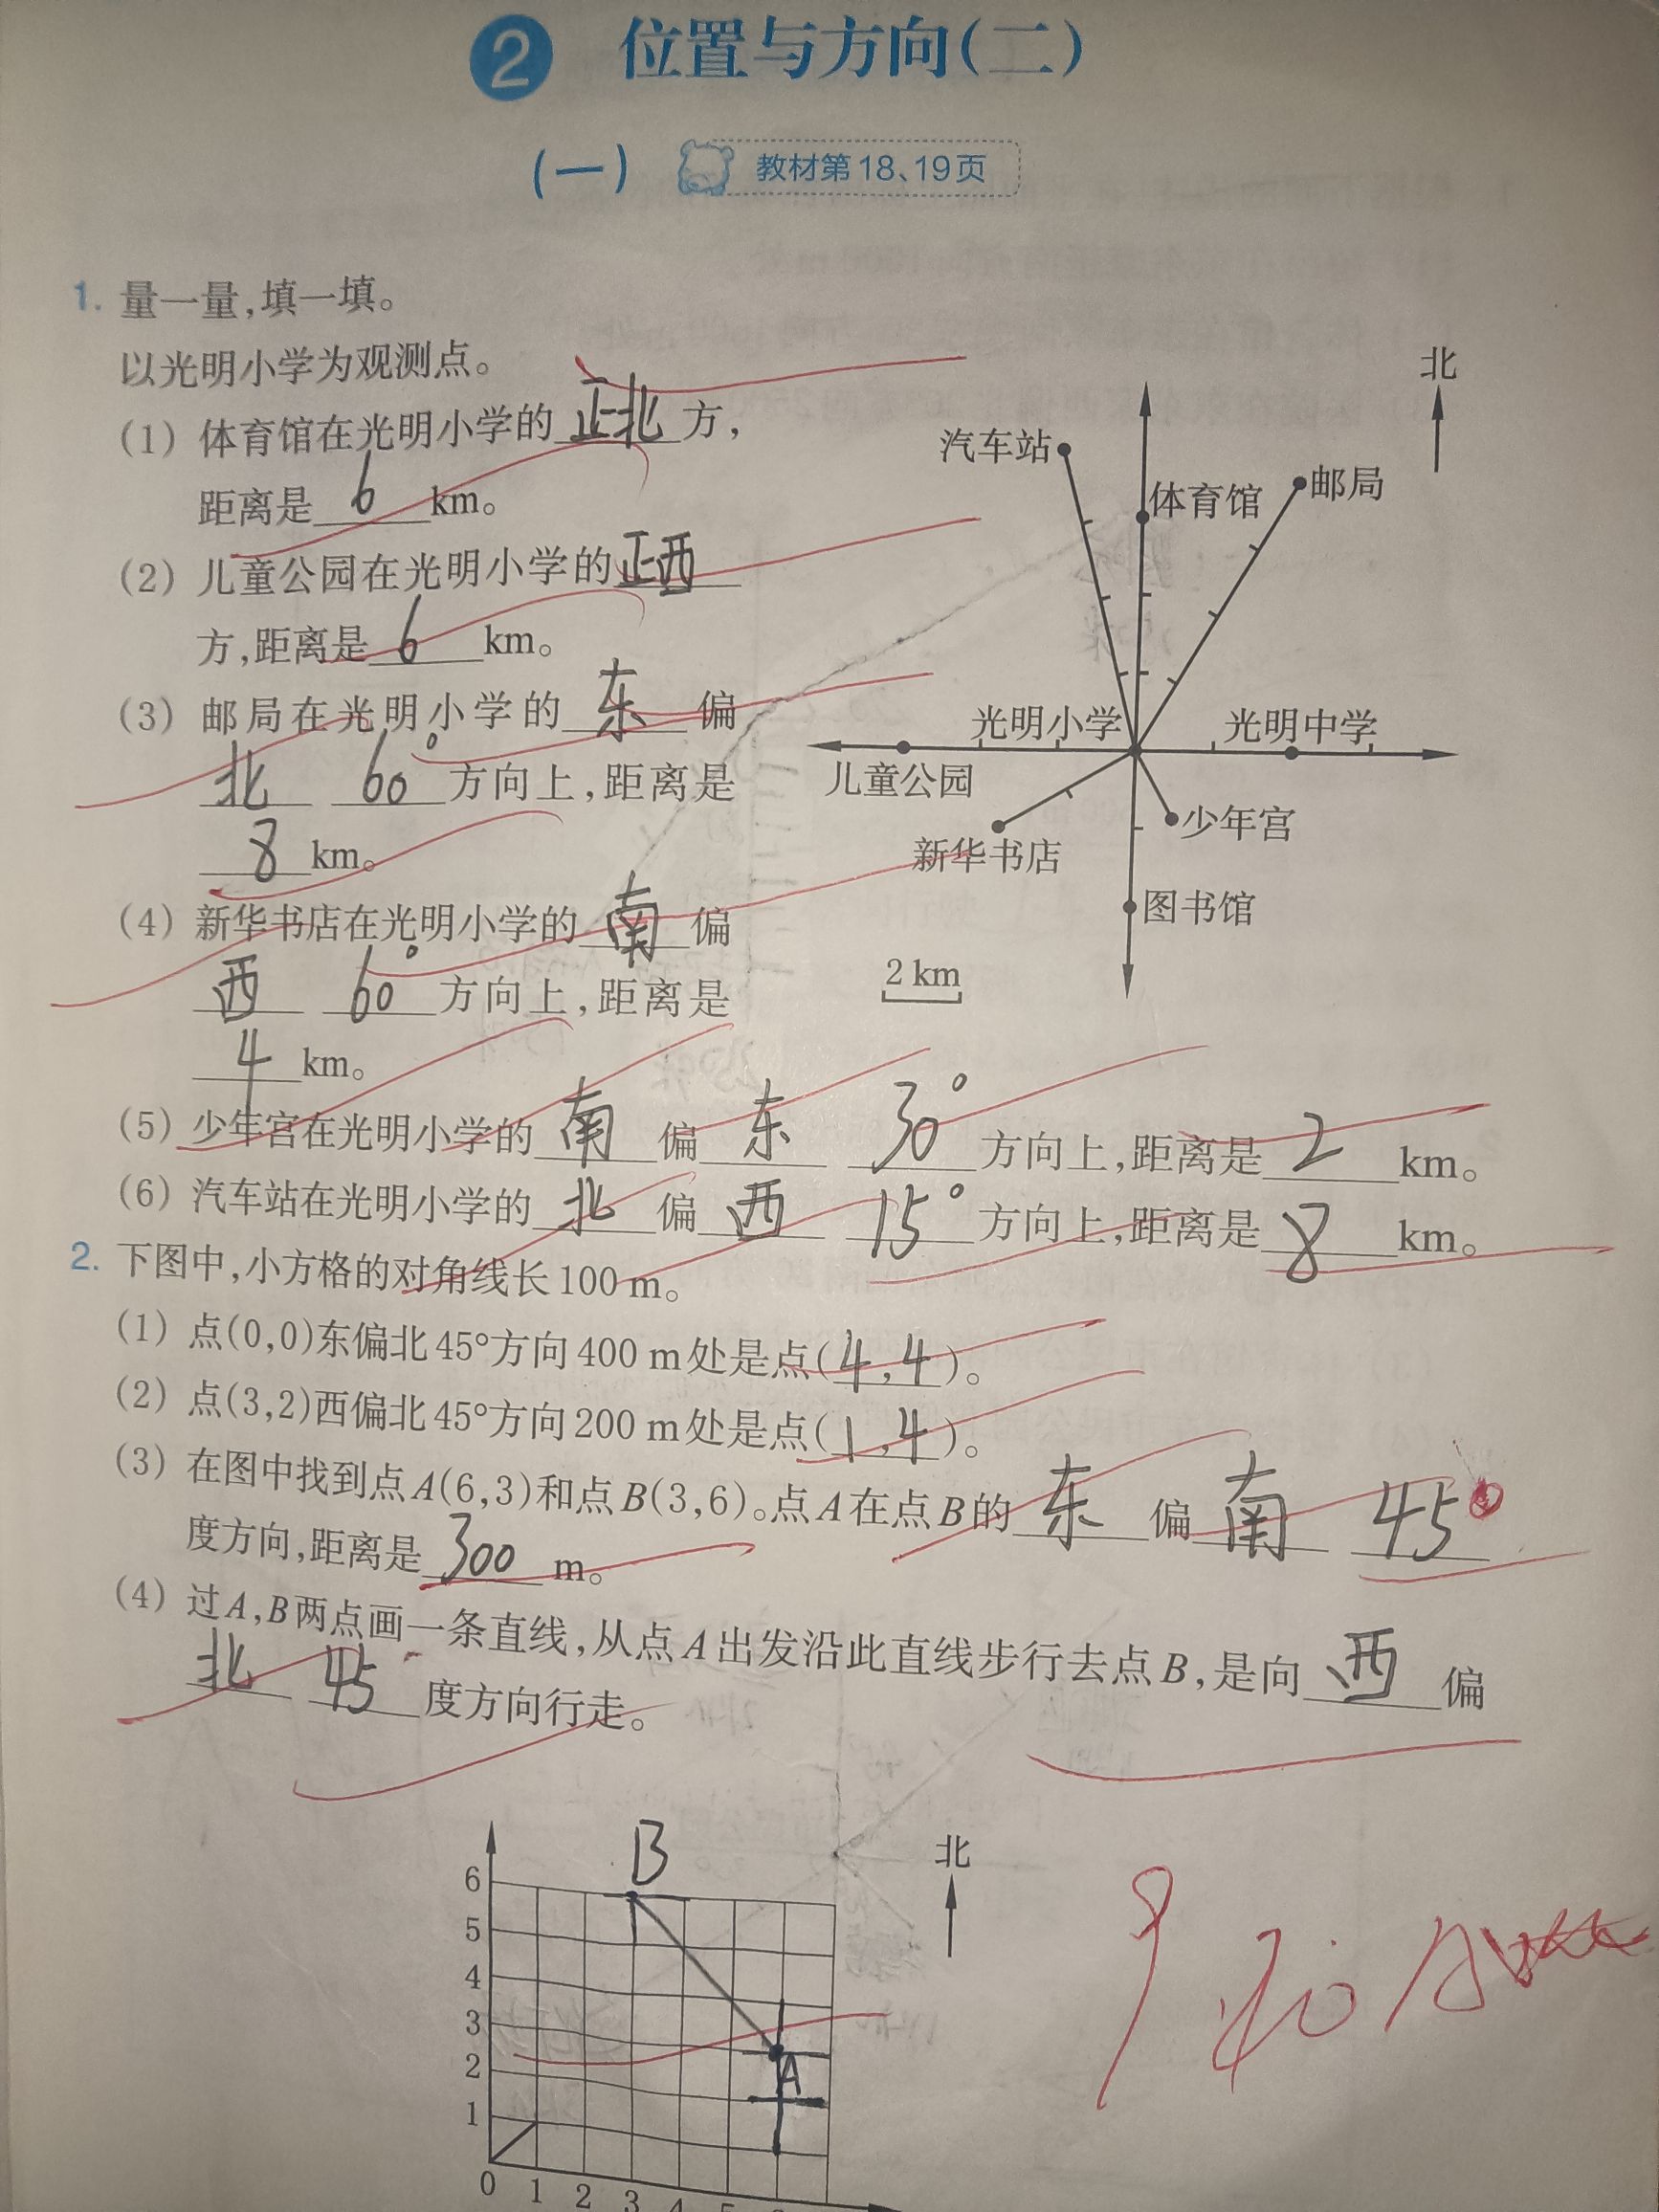 2 位置与方向(二)
(一) 教材第18、19页
1. 量一量,填一填。
以光明小学为观测点。
(1) 体育馆在光明小学的正北方,
距离是6km。
(2) 儿童公园在光明小学的正西
方,距离是6km。
(3) 邮局在光明小学的东偏
北 60°方向上,距离是
8km。
(4) 新华书店在光明小学的南偏
西 60°方向上,距离是
4km。
北
汽车站
体育馆
邮局
光明小学
光明中学
儿童公园
新华书店
少年宫
图书馆
2 km
(5) 少年宫在光明小学的南偏东 30°方向上,距离是2km。
(6) 汽车站在光明小学的北偏西 15°方向上,距离是8km。
2. 下图中,小方格的对角线长100 m。
(1) 点(0,0)东偏北45°方向400 m处是点(4,4)。
(2) 点(3,2)西偏北45°方向200 m处是点(1,4)。
(3) 在图中找到点A(6,3)和点B(3,6)。点A在点B的东偏南 45
度方向,距离是300 m。
(4) 过A,B两点画一条直线,从点A出发沿此直线步行去点B,是向西偏
北 45度方向行走。
B
北
6
5
4
3
2
1
A
0 1 2 3 4 5